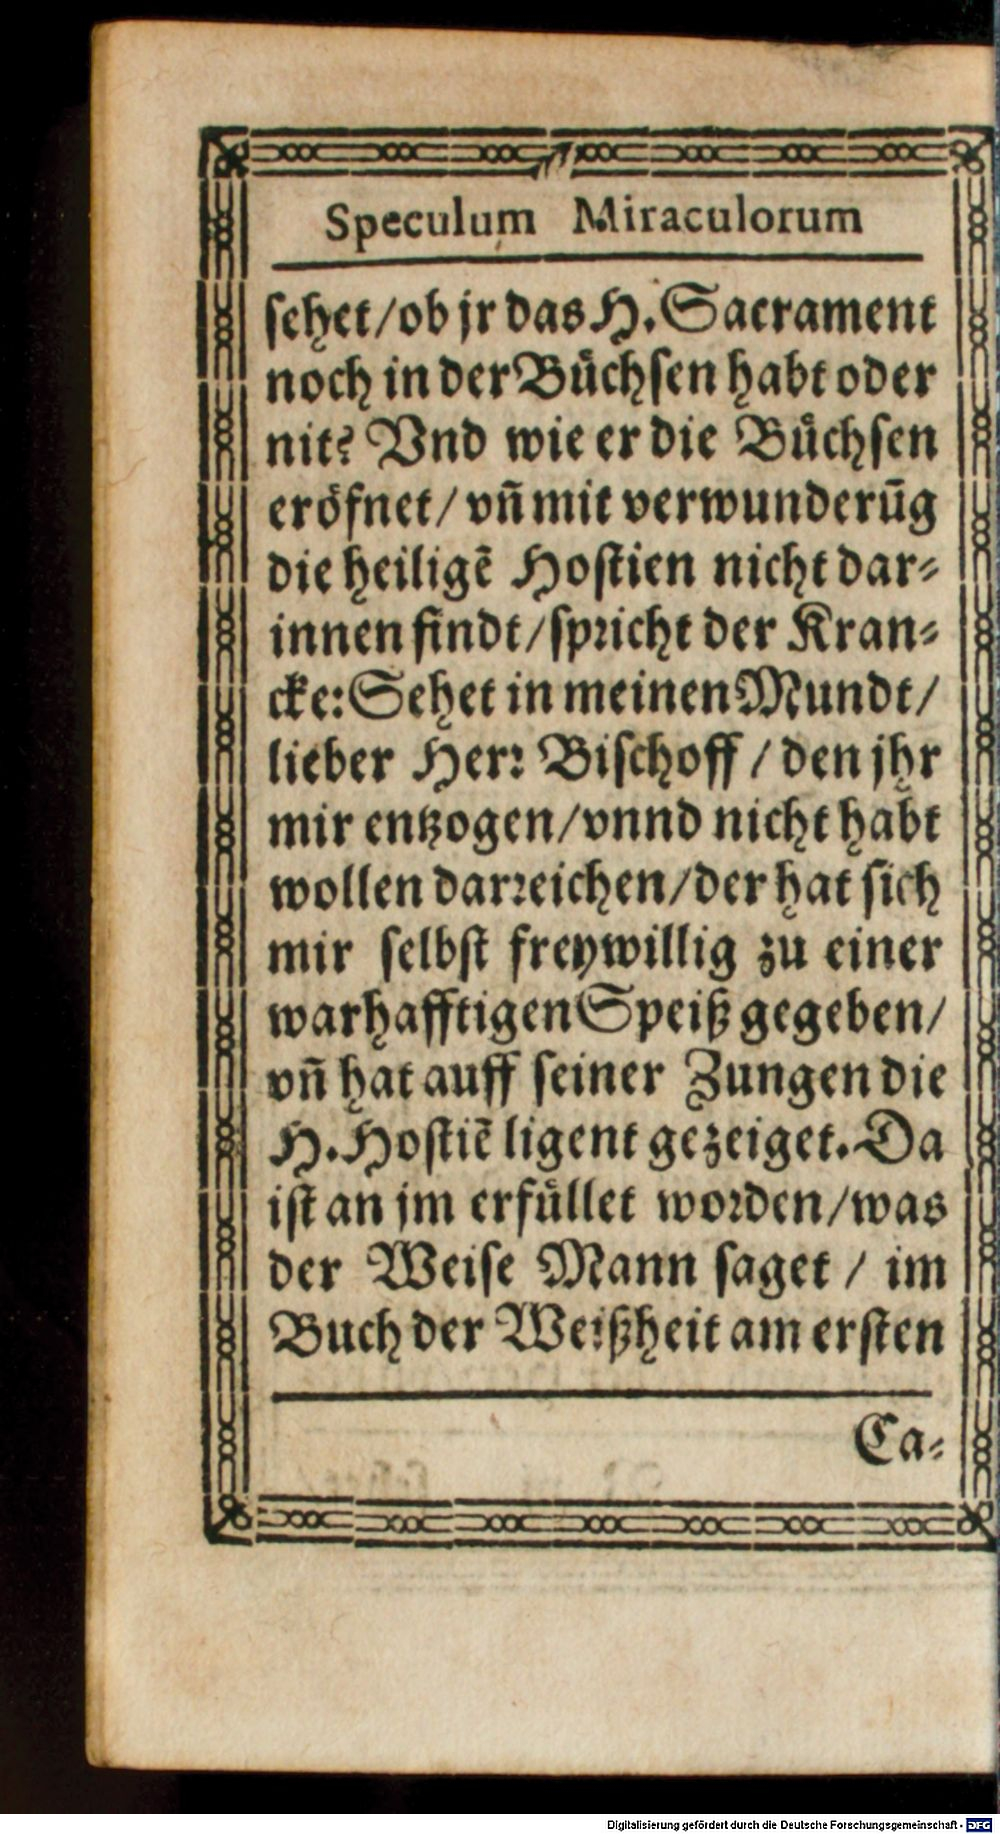 Speculum Miraculorum
sehet/ob jr das H. Sacrament
noch in der Büchsen habt oder
nit? Vnd wie er die Büchsen
eröfnet/vñ mit verwunderūg
die heiligē Hostien nicht dar⸗
innen findt/spricht der Kran⸗
cke: Sehet in meinen Mundt/
lieber Herr Bischoff/den jhr
mir entzogen/vnnd nicht habt
wollen darreichen/der hat sich
mir selbst freywillig zu einer
warhafftigen Speiß gegeben/
vñ hat auff seiner Zungen die
H. Hostiē ligent gezeiget. Da
ist an jm erfüllet worden/was
der Weise Mann saget/im
Buch der Weißheit am ersten
Ca⸗
Digitalisierung gefördert durch die Deutsche Forschungsgemeinschaft - DFG